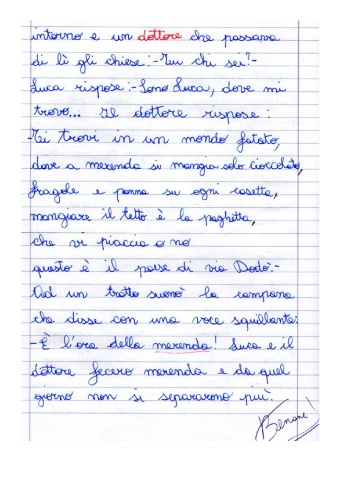 intorno e un dottore che passava
di lì gli chiese:-Tu chi sei?-
Luca rispose:-Sono Luca, dove mi
trovo... Il dottore rispose:
-Ti trovi in un mondo fatato,
dove a merenda si mangia solo cioccolato,
fragole e panna su ogni casetta,
mangiare il tetto è la paghetta,
che vi piaccia o no
questo è il paese di via Dodò.-
Ad un tratto suonò la campana
che disse con una voce squillante:
-È l'ora della merenda! Luca e il
dottore fecero merenda e da quel
giorno non si separarono più.